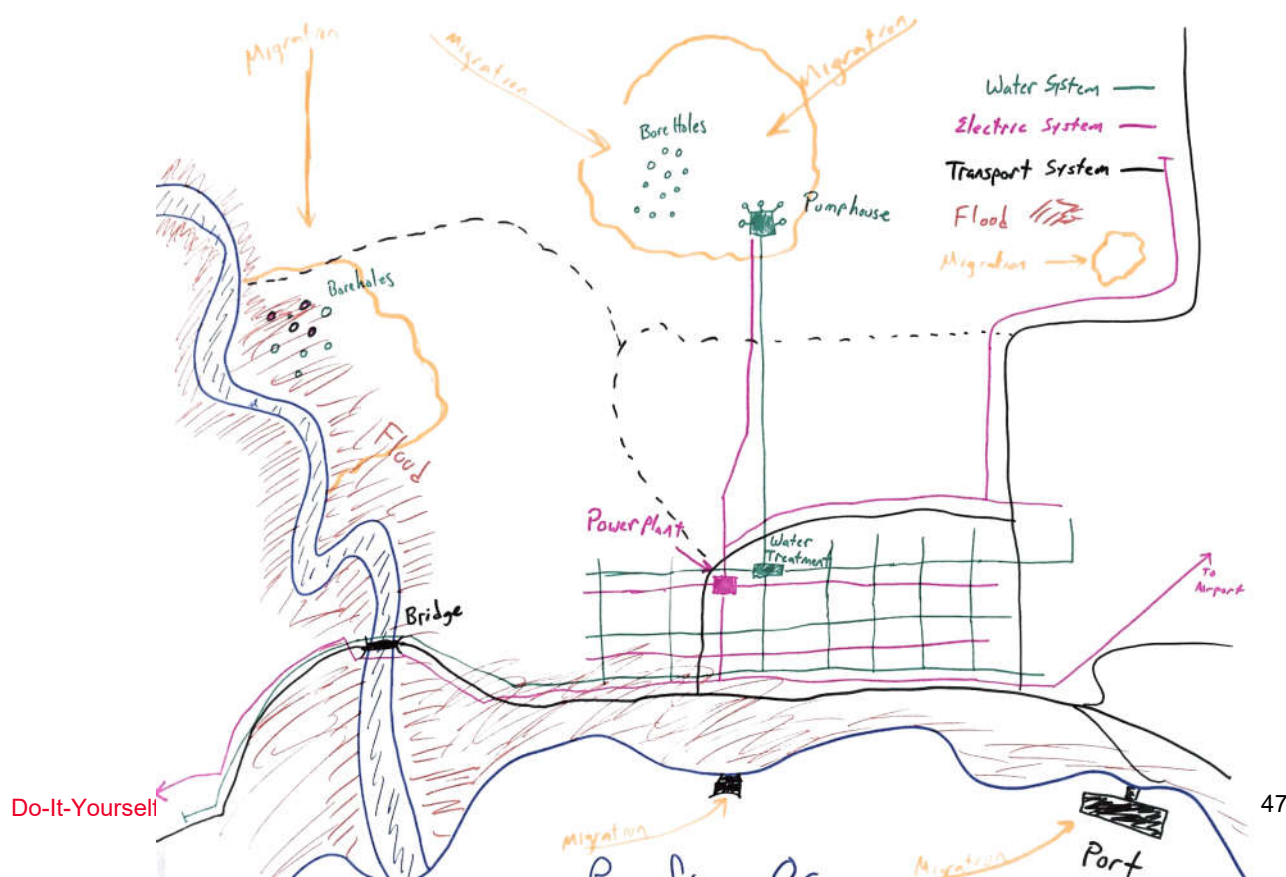 Migration
Migration
Migration
Water System
Electric System
Transport System
Flood
Migration
Bore Holes
Pumphouse
Boreholes
Flood
Power plant
Water
Treatment
To
Airport
Bridge
Do-It-Yourself
47
Migration
Migration
Port